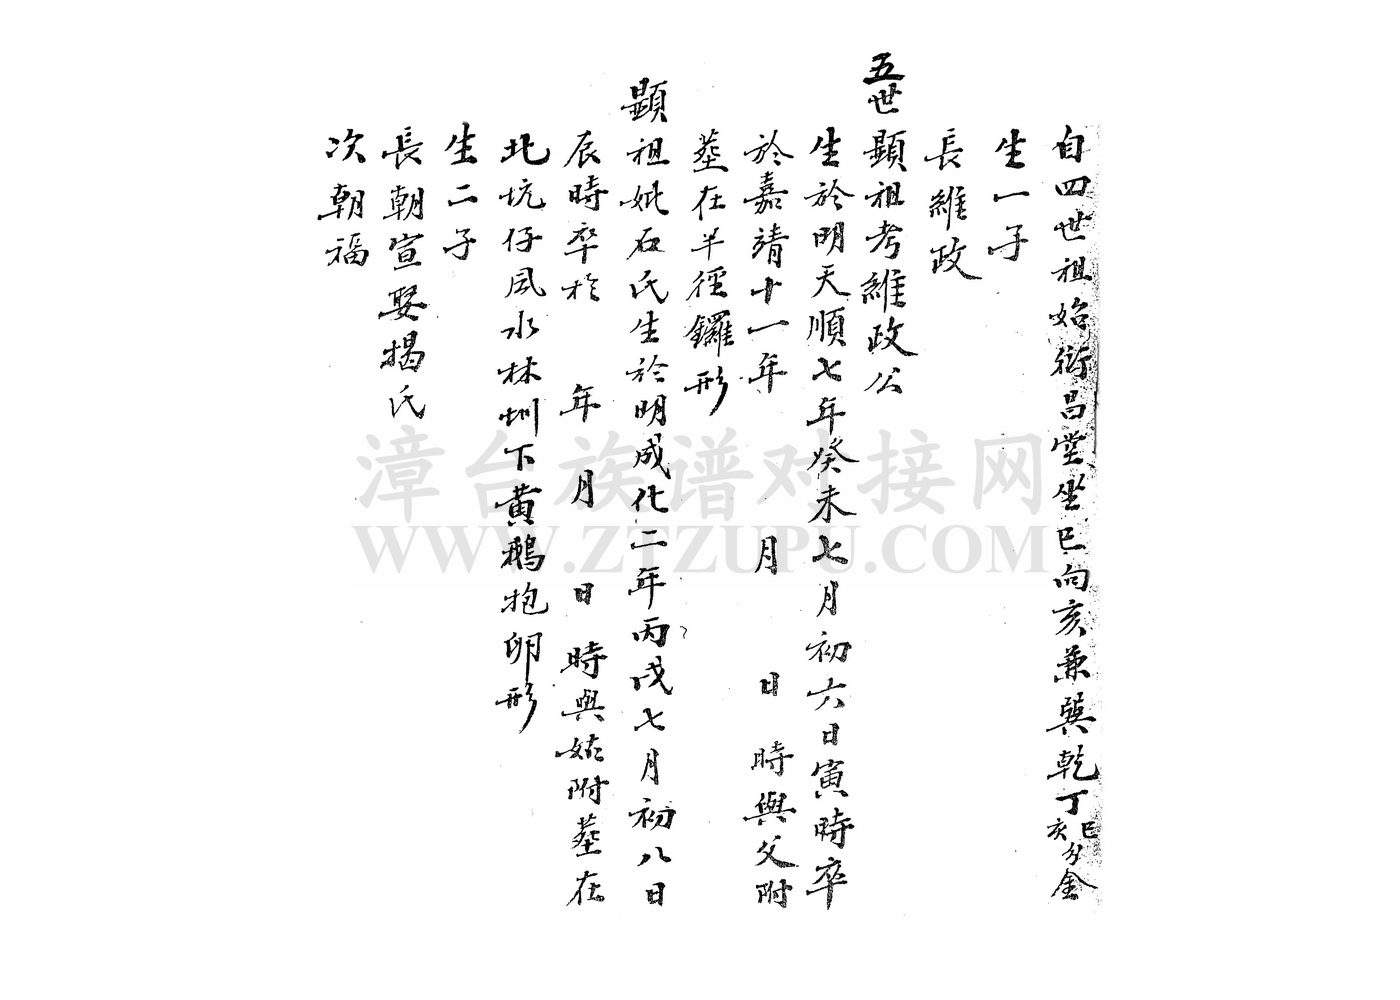 自四世祖始衍昌堂坐巳向亥兼巽乾丁巳亥分金
生一子
長維政
五世顯祖考維政公
生於明天順七年癸未七月初六日寅時卒
於嘉靖十一年 月 日 時與父附
塟在羊徑鑼形
顯祖妣石氏生於明成化二年丙戌七月初八日
辰時卒於 年 月 日 時與姑附塟在
北坑仔風水林圳下黄鵝抱卵形
生二子
長朝宣娶楊氏
次朝福
漳台族谱对接网
WWW.ZTZUPU.COM